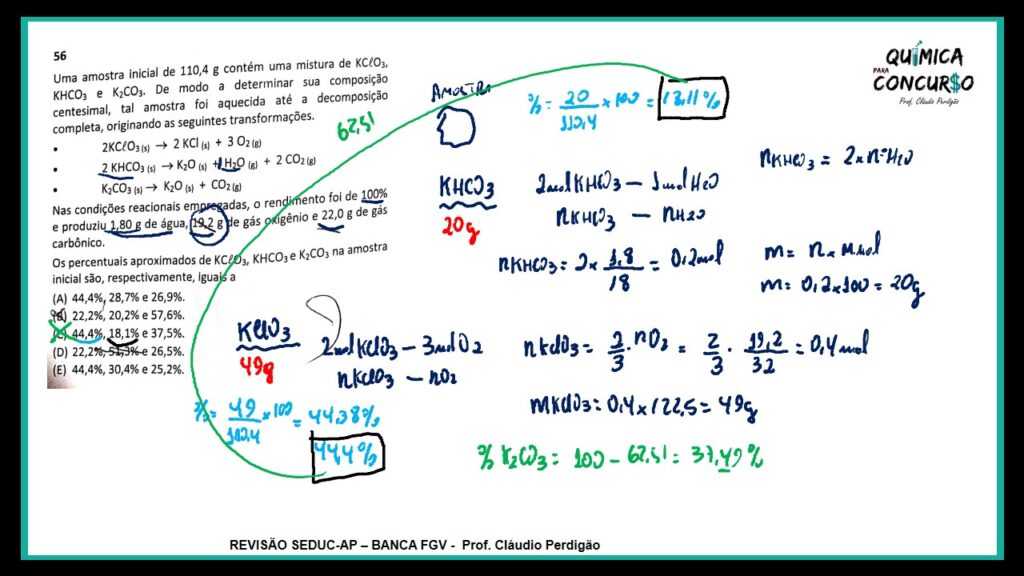 56
Uma amostra inicial de 110,4 g contém uma mistura de KCℓO₃,
KHCO₃ e K₂CO₃. De modo a determinar sua composição
centesimal, tal amostra foi aquecida até a decomposição
completa, originando as seguintes transformações.
• 2KCℓO₃(s) → 2 KCl(s) + 3 O₂(g)
• 2 KHCO₃(s) → K₂O(s) + H₂O(g) + 2 CO₂(g)
• K₂CO₃(s) → K₂O(s) + CO₂(g)
Nas condições reacionais empregadas, o rendimento foi de 100%
e produziu 1,80 g de água, 19,2 g de gás oxigênio e 22,0 g de gás
carbônico.
Os percentuais aproximados de KCℓO₃, KHCO₃ e K₂CO₃ na amostra
inicial são, respectivamente, iguais a
(A) 44,4%, 28,7% e 26,9%.
(B) 22,2%, 20,2% e 57,6%.
(C) 44,4%, 18,1% e 37,5%.
(D) 22,2%, 51,3% e 26,5%.
(E) 44,4%, 30,4% e 25,2%.
QUÍMICA
PARA
CONCUR$O
Prof. Cláudio Perdigão
AMOSTRA
62,51
% = 20/110,4 x 100 = 18,11%
KHCO₃
20g
2mol KHCO₃ — 1mol H₂O
nKHCO₃ — nH₂O
nKHCO₃ = 2 x nºH₂O
nKHCO₃ = 2 x 1,8/18 = 0,2mol
m = n x M.mol
m = 0,2 x 100 = 20g
KClO₃
49g
2mol KClO₃ — 3mol O₂
nKClO₃ — nO₂
nKClO₃ = 2/3 . nO₂ = 2/3 . 19,2/32 = 0,4mol
mKClO₃ = 0,4 x 122,5 = 49g
% = 49/110,4 x 100 = 44,38%
44,4%
% K₂CO₃ = 100 - 62,51 = 37,49%
REVISÃO SEDUC-AP – BANCA FGV - Prof. Cláudio Perdigão